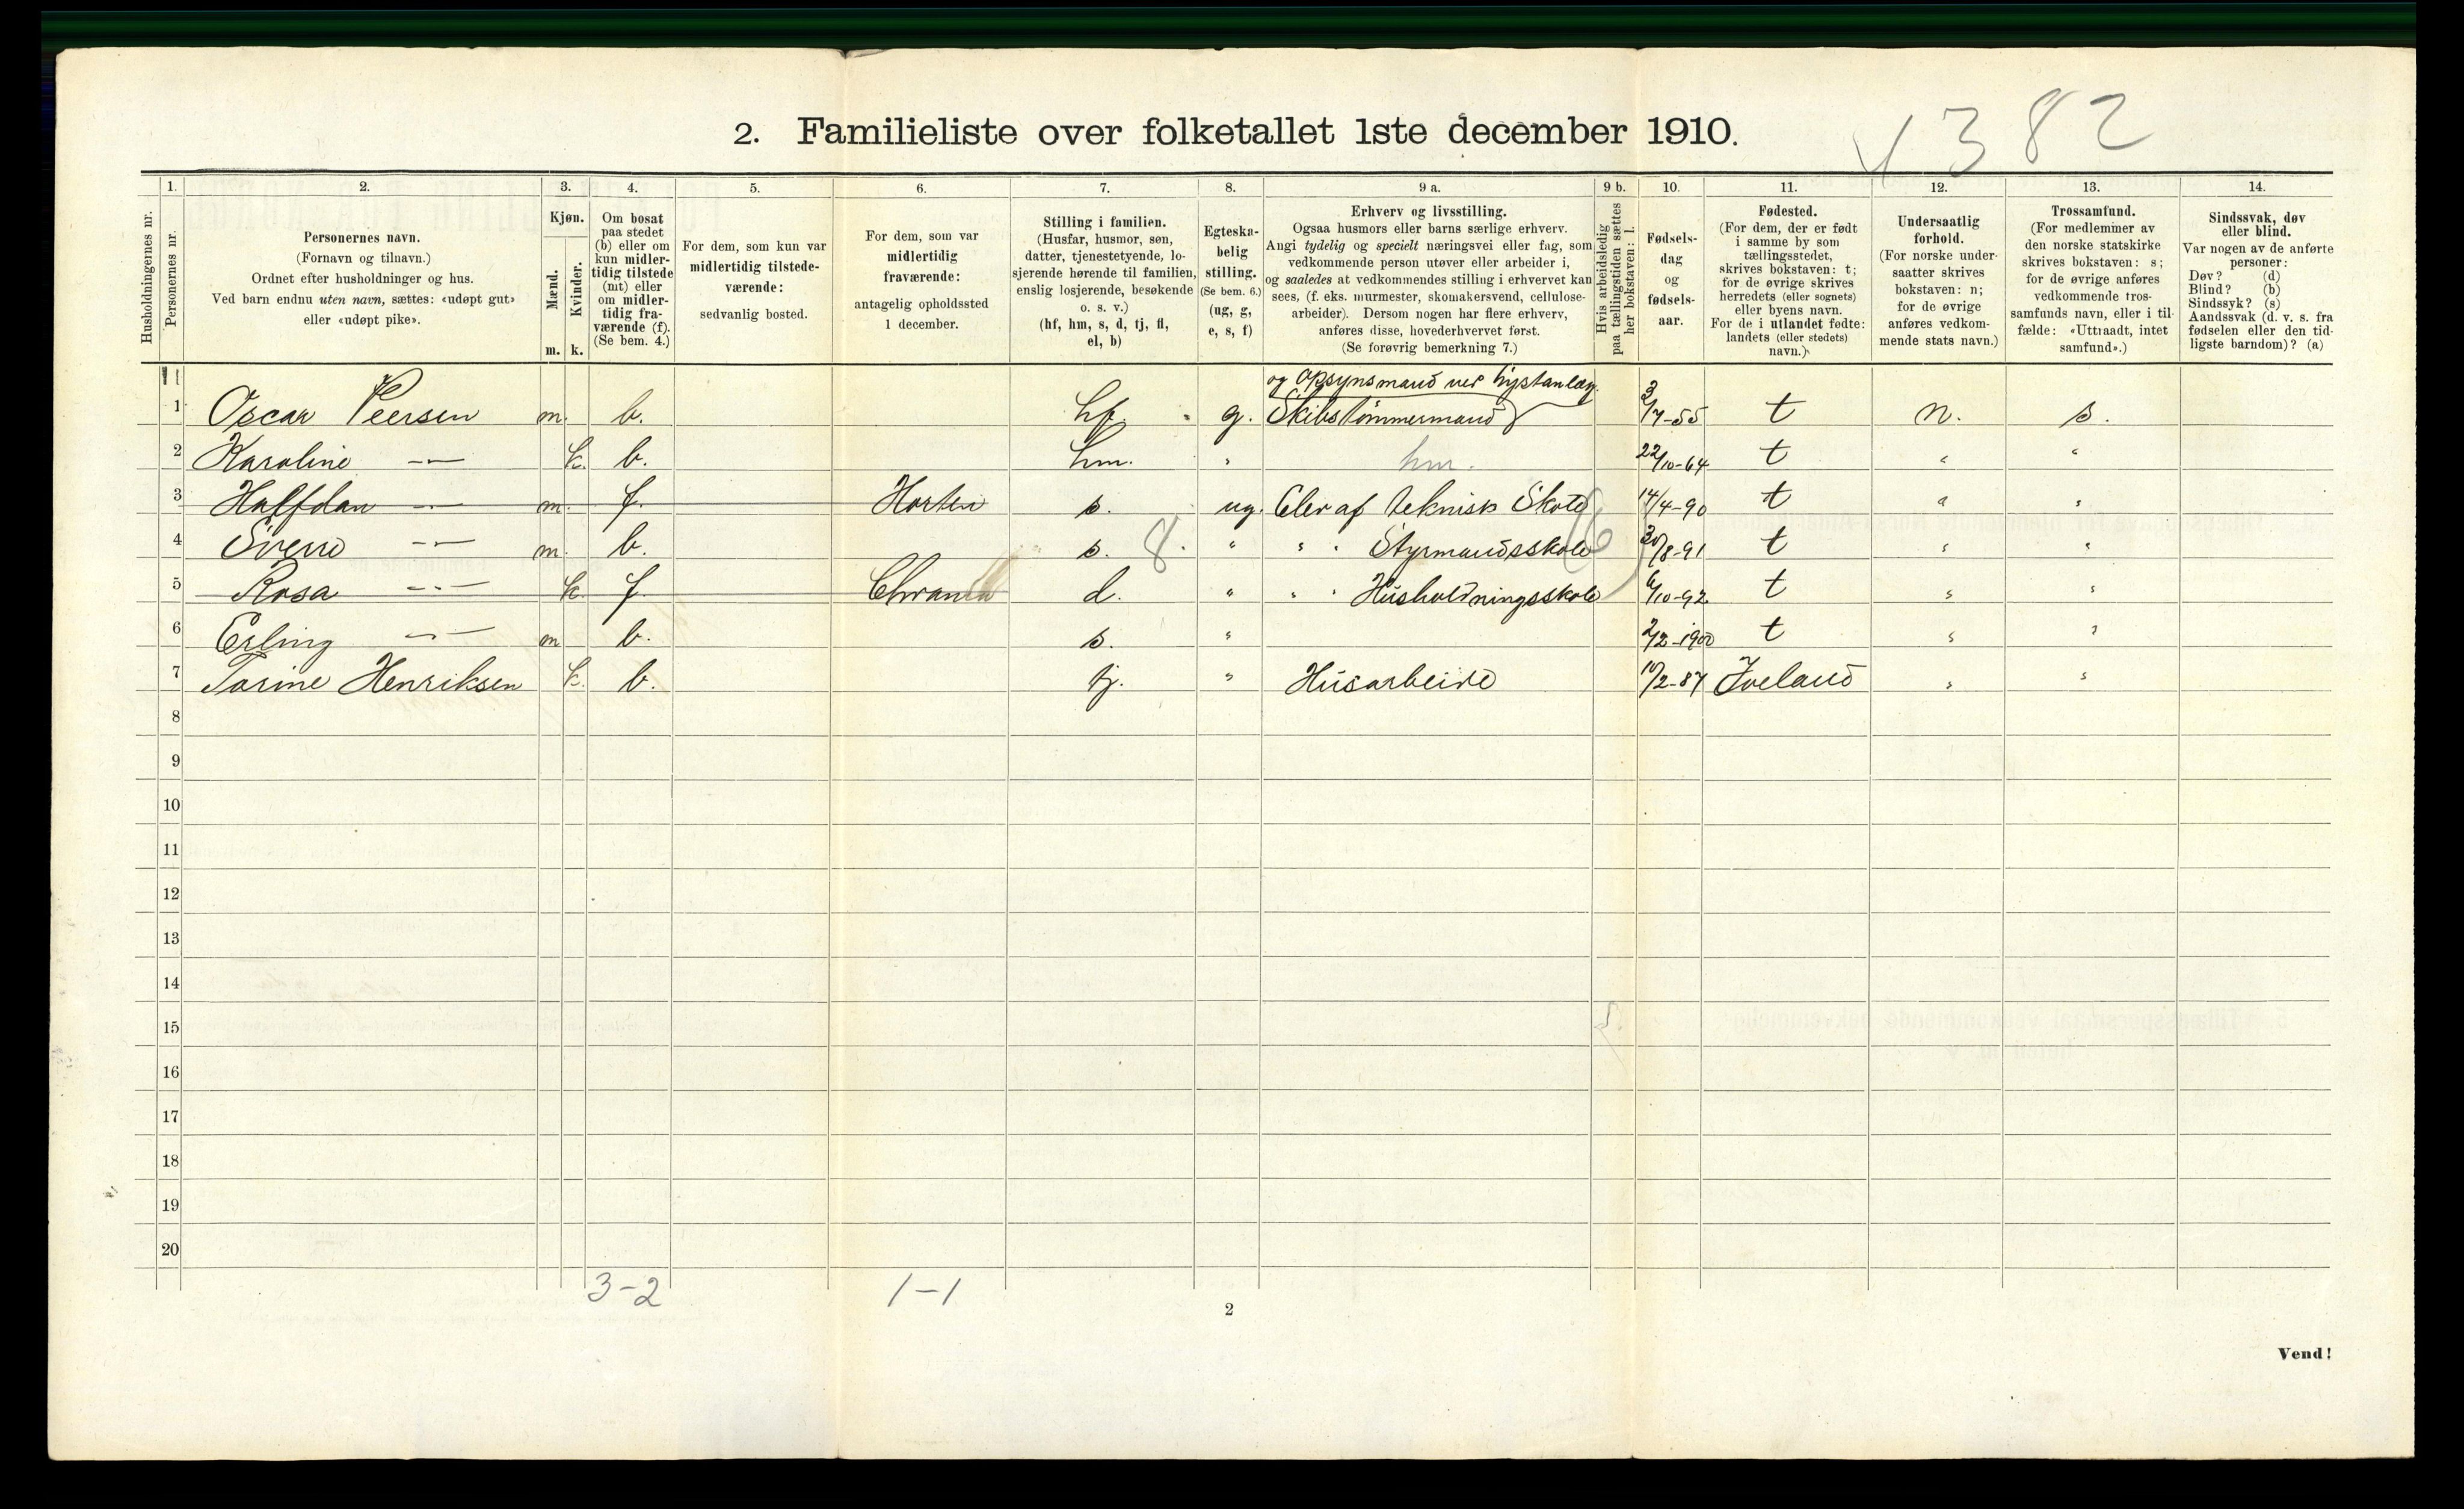 2. Familieliste over folketallet 1ste december 1910.
4382
1. 2. 3. 4. 5. 6. 7. 8. 9 a. 9 b. 10. 11. 12. 13. 14.
Husholdningernes nr.
Personernes nr.
Personernes navn.
(Fornavn og tilnavn.)
Ordnet efter husholdninger og hus.
Ved barn endnu uten navn, sættes: «udøpt gut»
eller «udøpt pike».
Kjøn.
Mænd.
Kvinder.
m. k.
Om bosat
paa stedet
(b) eller om
kun midler-
tidig tilstede
(mt) eller
om midler-
tidig fra-
værende (f).
(Se bem. 4.)
For dem, som kun var
midlertidig tilstede-
værende:
sedvanlig bosted.
For dem, som var
midlertidig
fraværende:
antagelig opholdssted
1 december.
Stilling i familien.
(Husfar, husmor, søn,
datter, tjenestetyende, lo-
sjerende hørende til familien,
enslig losjerende, besøkende
o. s. v.)
(hf, hm, s, d, tj, fl,
el, b)
Egteska-
belig
stilling.
(Se bem. 6.)
(ug, g,
e, s, f)
Erhverv og livsstilling.
Ogsaa husmors eller barns særlige erhverv.
Angi tydelig og specielt næringsvei eller fag, som
vedkommende person utøver eller arbeider i,
og saaledes at vedkommendes stilling i erhvervet kan
sees, (f. eks. murmester, skomakersvend, cellulose-
arbeider). Dersom nogen har flere erhverv,
anføres disse, hovederhvervet først.
(Se forøvrig bemerkning 7.)
Hvis arbeidsledig
paa tællingstiden sættes
her bokstaven: l.
Fødsels-
dag
og
fødsels-
aar.
Fødested.
(For dem, der er født
i samme by som
tællingsstedet,
skrives bokstaven: t;
for de øvrige skrives
herredets (eller sognets)
eller byens navn.
For de i utlandet fødte:
landets (eller stedets)
navn.)
Undersaatlig
forhold.
(For norske under-
saatter skrives
bokstaven: n;
for de øvrige
anføres vedkom-
mende stats navn.)
Trossamfund.
(For medlemmer av
den norske statskirke
skrives bokstaven: s;
for de øvrige anføres
vedkommende tros-
samfunds navn, eller i til-
fælde: «Uttraadt, intet
samfund».)
Sindssvak, døv
eller blind.
Var nogen av de anførte
personer:
Døv? (d)
Blind? (b)
Sindssyk? (s)
Aandssvak (d. v. s. fra
fødselen eller den tid-
ligste barndom)? (a)
og Opsynsmand ved Lystanlæg.
1 Oscar Peersen m. b. hf. g. Skibstømmermand 3/7-55 t n. s.
2 Karoline -"- k. b. hm. " hm. 22/10-64 t " "
3 Halfdan -"- m. f. Horten s. ug. Elev af teknisk Skole 14/4-90 t " "
4 Sverre -"- m. b. s. 8. " " " Styrmandsskole 30/8-91 t " "
5 Rosa -"- k. f. Chrania d. " " " Husholdningsskole 6/10-92 t " "
6 Erling -"- m b. s. " 2/2-1900 t " "
7 Tarine Henriksen k. b. tj. " Husarbeide 10/2-87 Iveland " "
8
9
10
11
12
13
14
15
16
17
18
19
20
3-2 1-1
2
Vend!